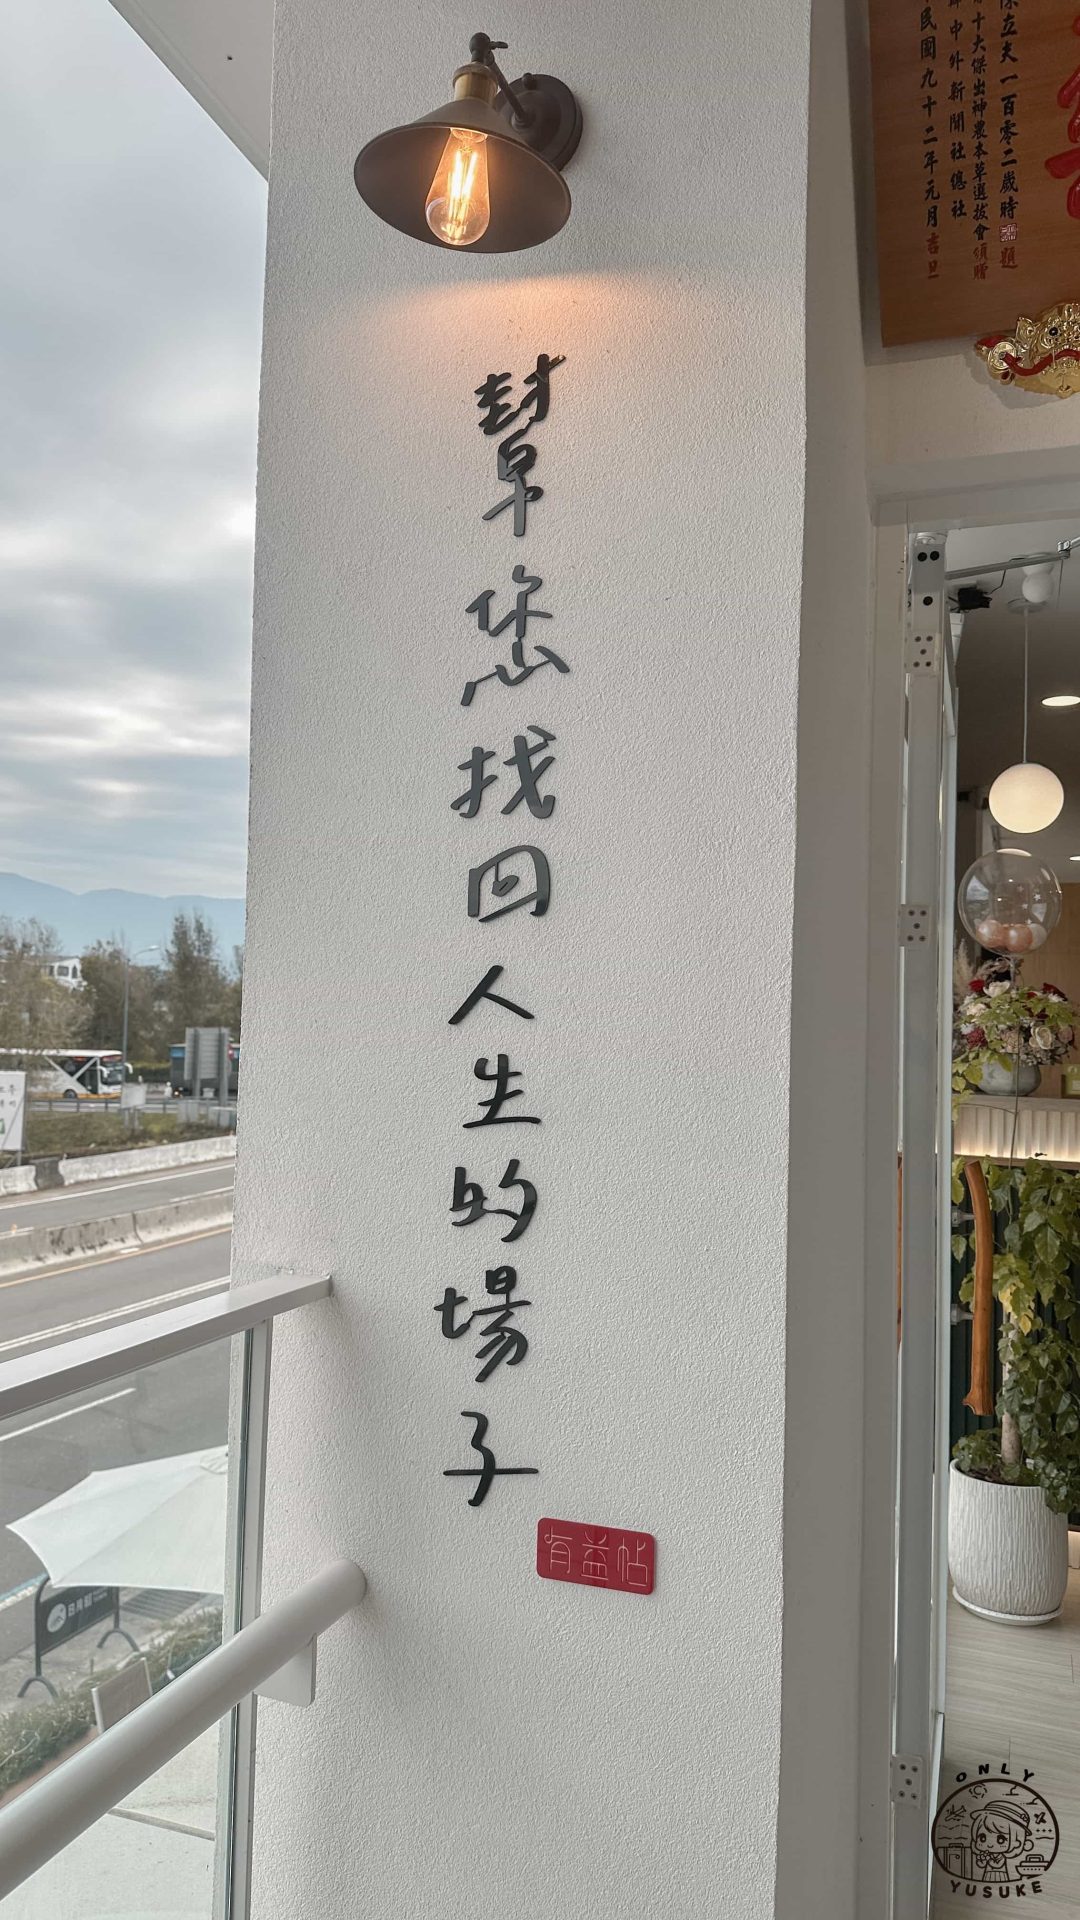 幫您找回人生的場子
有益帖
陳立夫一百零二歲時題
十大傑出神農本草選拔會頒贈
中外新聞社總社
民國九十二年元月吉旦
ONLY
YUSUKE